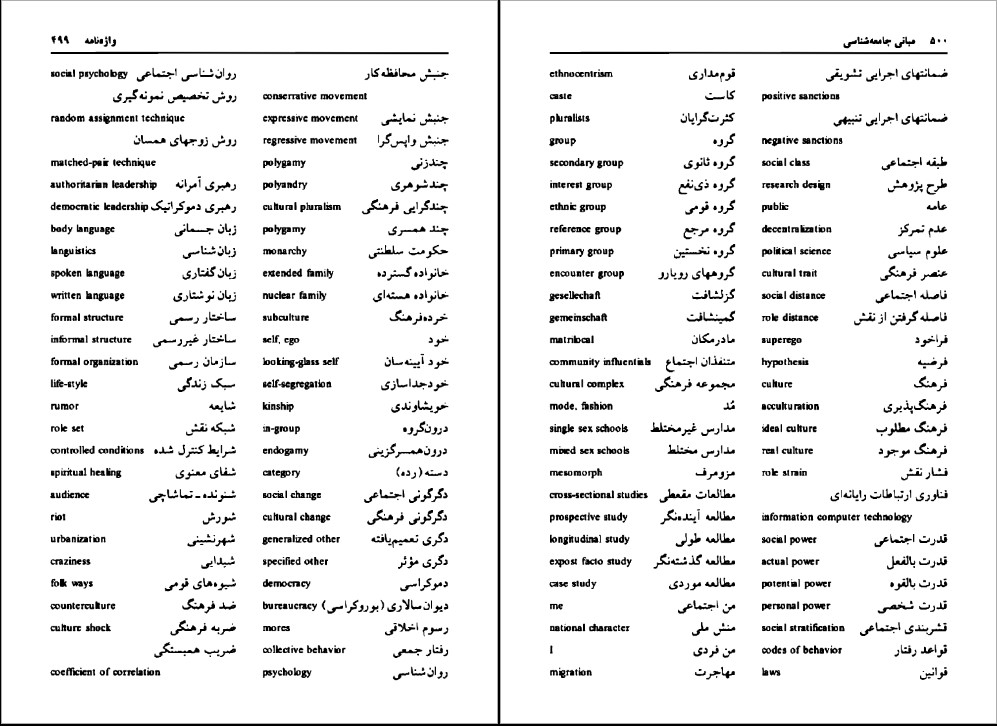 واژه‌نامه ۴۹۹
جنبش محافظه‌کار
conserrative movement
جنبش نمایشی expressive movement
جنبش واپس‌گرا regressive movement
چندزنی polygamy
چندشوهری polyandry
چندگرایی فرهنگی cultural pluralism
چند همسری polygamy
حکومت سلطنتی monarchy
خانواده گسترده extended family
خانواده هسته‌ای nuclear family
خرده‌فرهنگ subculture
خود self, ego
خود آیینه‌سان looking-glass self
خودجداسازی self-segregation
خویشاوندی kinship
درون‌گروه in-group
درون‌همسرگزینی endogamy
دسته (رده) category
دگرگونی اجتماعی social change
دگرگونی فرهنگی cultural change
دگری تعمیم‌یافته generalized other
دگری مؤثر specified other
دموکراسی democracy
دیوان‌سالاری (بوروکراسی) bureaucracy
رسوم اخلاقی mores
رفتار جمعی collective behavior
روان‌شناسی psychology
روان‌شناسی اجتماعی social psychology
روش تخصیص نمونه‌گیری
random assignment technique
روش زوجهای همسان
matched-pair technique
رهبری آمرانه authoritarian leadership
رهبری دموکراتیک democratic leadership
زبان جسمانی body language
زبان‌شناسی languistics
زبان گفتاری spoken language
زبان نوشتاری written language
ساختار رسمی formal structure
ساختار غیررسمی informal structure
سازمان رسمی formal organization
سبک زندگی life-style
شایعه rumor
شبکه نقش role set
شرایط کنترل شده controlled conditions
شفای معنوی spiritual healing
شنونده-تماشاچی audience
شورش riot
شهرنشینی urbanization
شیدایی craziness
شیوه‌های قومی folk ways
ضد فرهنگ counterculture
ضربه فرهنگی culture shock
ضریب همبستگی
coefficient of correlation
۵۰۰ مبانی جامعه‌شناسی
ضمانتهای اجرایی تشویقی
positive sanctions
ضمانتهای اجرایی تنبیهی
negative sanctions
طبقه اجتماعی social class
طرح پژوهش research design
عامه public
عدم تمرکز decentralization
علوم سیاسی political science
عنصر فرهنگی cultural trait
فاصله اجتماعی social distance
فاصله گرفتن از نقش role distance
فراخود superego
فرضیه hypothesis
فرهنگ culture
فرهنگ‌پذیری acculturation
فرهنگ مطلوب ideal culture
فرهنگ موجود real culture
فشار نقش role strain
فناوری ارتباطات رایانه‌ای
information computer technology
قدرت اجتماعی social power
قدرت بالفعل actual power
قدرت بالقوه potential power
قدرت شخصی personal power
قشربندی اجتماعی social stratification
قواعد رفتار codes of behavior
قوانین laws
قوم‌مداری ethnocentrism
کاست caste
کثرت‌گرایان pluralists
گروه group
گروه ثانوی secondary group
گروه ذی‌نفع interest group
گروه قومی ethnic group
گروه مرجع reference group
گروه نخستین primary group
گروههای رویارو encounter group
گزلشافت gesellechaft
گمینشافت gemeinschaft
مادرمکان matrilocal
متنفذان اجتماع community influentials
مجموعه فرهنگی cultural complex
مُد mode, fashion
مدارس غیرمختلط single sex schools
مدارس مختلط mixed sex schools
مزومرف mesomorph
مطالعات مقطعی cross-sectional studies
مطالعه آینده‌نگر prospective study
مطالعه طولی longitudinal study
مطالعه گذشته‌نگر expost facto study
مطالعه موردی case study
من اجتماعی me
منش ملی national character
من فردی I
مهاجرت migration